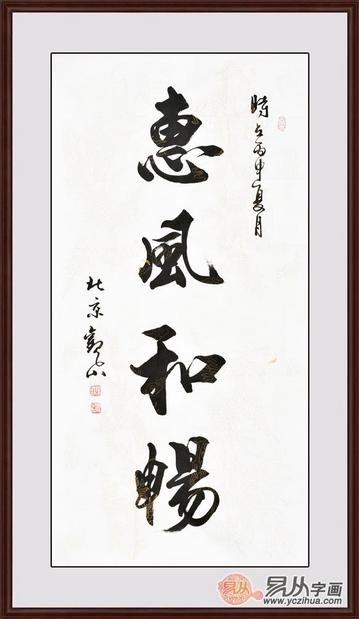 時在丙申夏月
惠風和暢
北京觀山
易从字画
www.yczihua.com